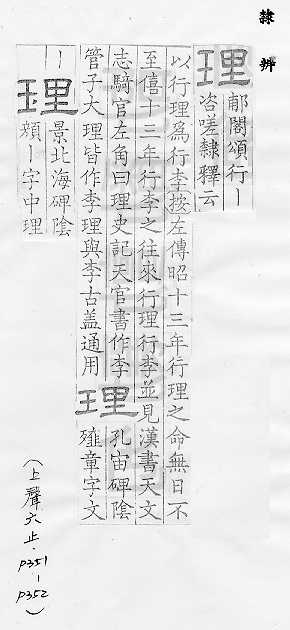 隸辨
理
郙閣頌行丨
咨嗟隸釋云
以行理爲行李按左傳昭十三年行理之命無日不
至僖十三年行李之往來行理行李並見漢書天文
志騎官左角曰理史記天官書作李
管子大理皆作李理與李古盖通用
理
孔宙碑陰
章字文
丨
理
景北海碑陰
丨字中理
(上聲六止·P351-P352)